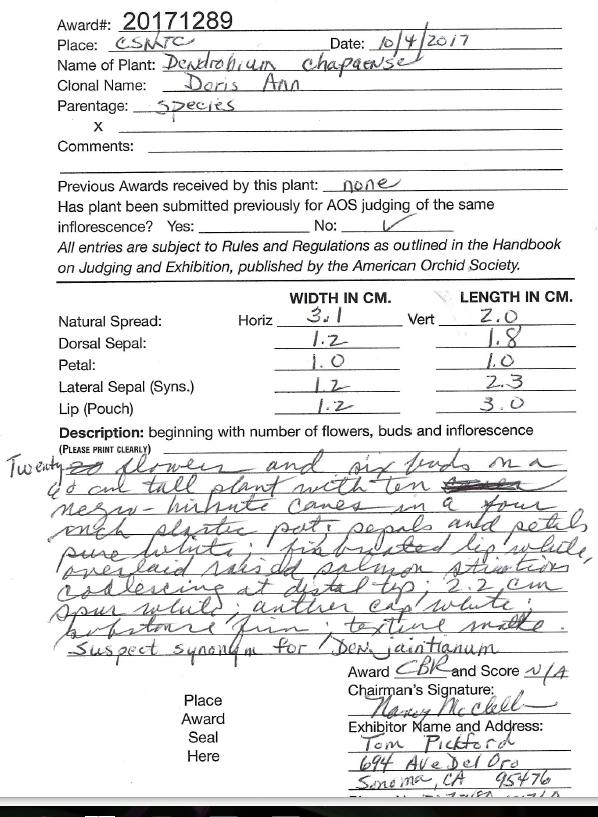 Award#: 20171289
Place: CSNTC Date: 10/4/2017
Name of Plant: Dendrobium chapaense
Clonal Name: Doris Ann
Parentage: species
X
Comments:
Previous Awards received by this plant: none
Has plant been submitted previously for AOS judging of the same
inflorescence? Yes: No: ✓
All entries are subject to Rules and Regulations as outlined in the Handbook
on Judging and Exhibition, published by the American Orchid Society.
WIDTH IN CM. LENGTH IN CM.
Natural Spread: Horiz 3.1 Vert 2.0
Dorsal Sepal: 1.2 1.8
Petal: 1.0 1.0
Lateral Sepal (Syns.) 1.2 2.3
Lip (Pouch) 1.2 3.0
Description: beginning with number of flowers, buds and inflorescence
(PLEASE PRINT CLEARLY)
Twenty flowers and six buds on a
cm tall plant with ten
negro-hirsute canes in a four
inch plastic pot; sepals and petals
pure white; fimbriated lip white,
overlaid raised salmon striations
coalescing at distal tip; 2.2 cm
spur white; anther cap white;
substance firm; texture matte.
Suspect synonym for Den. jaintianum
Award CBR and Score N/A
Chairman's Signature:
Nancy McClell
Place
Award
Seal
Here
Exhibitor Name and Address:
Tom Pickford
694 Ave Del Oro
Sonoma, CA 95476